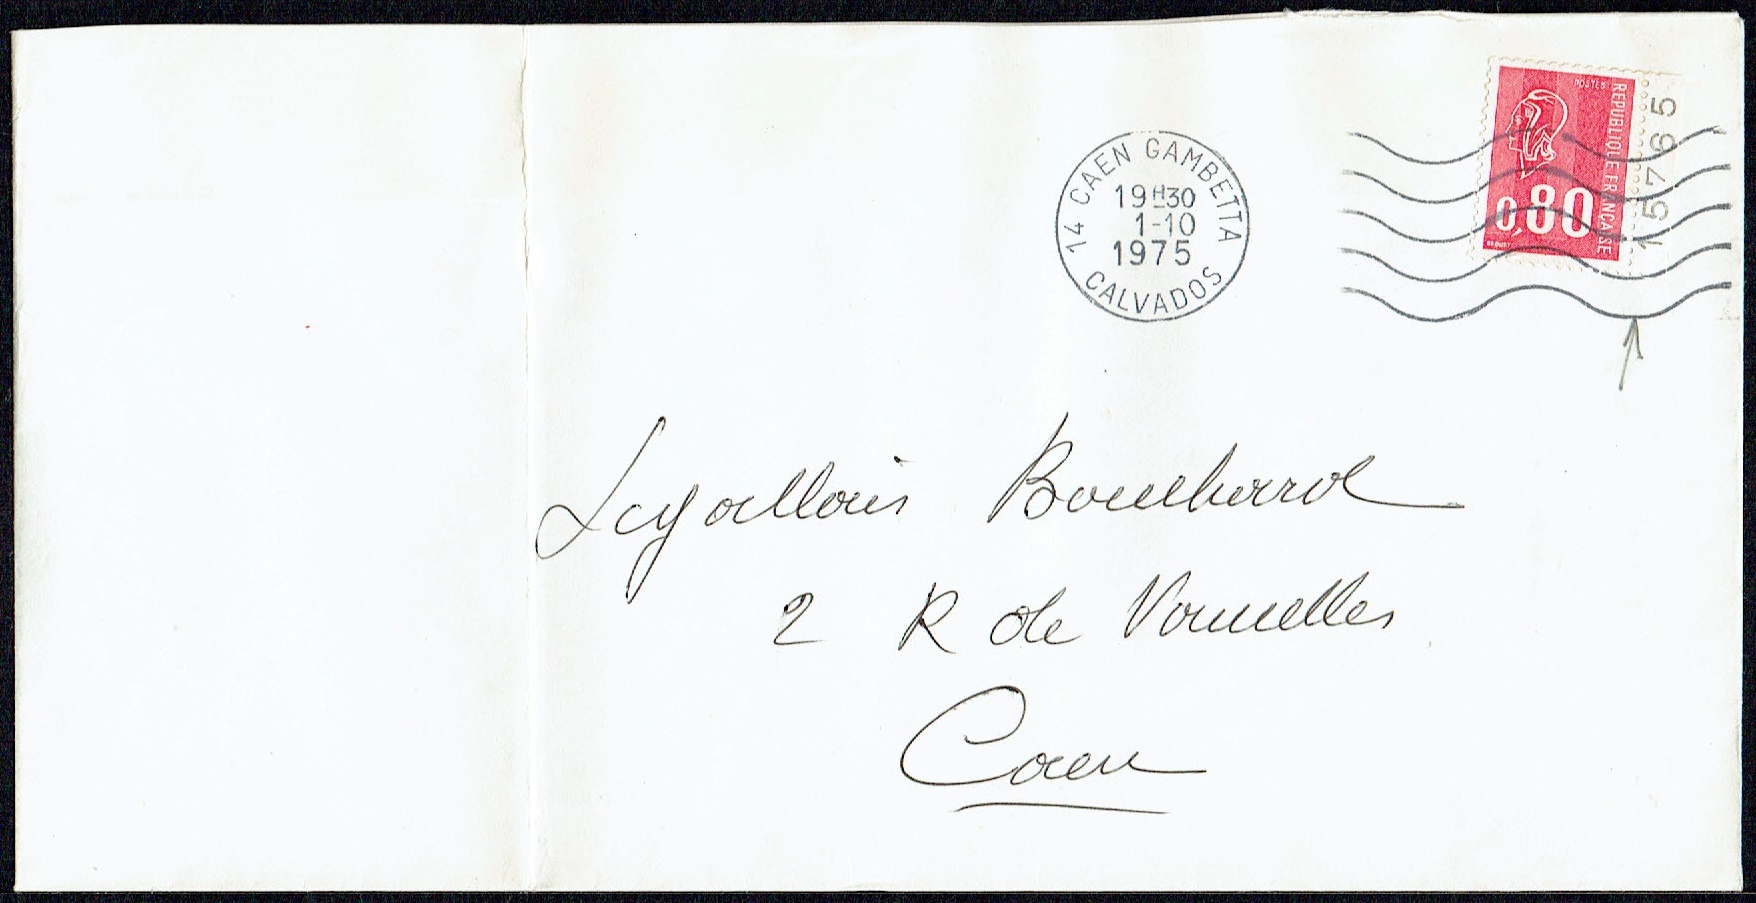 14 CAEN GAMBETTA
19H30
1-10
1975
CALVADOS
POSTES
REPUBLIQUE FRANCAISE
0,80
15765
Legallois Bouchard
2 R de Vaucelles
Caen